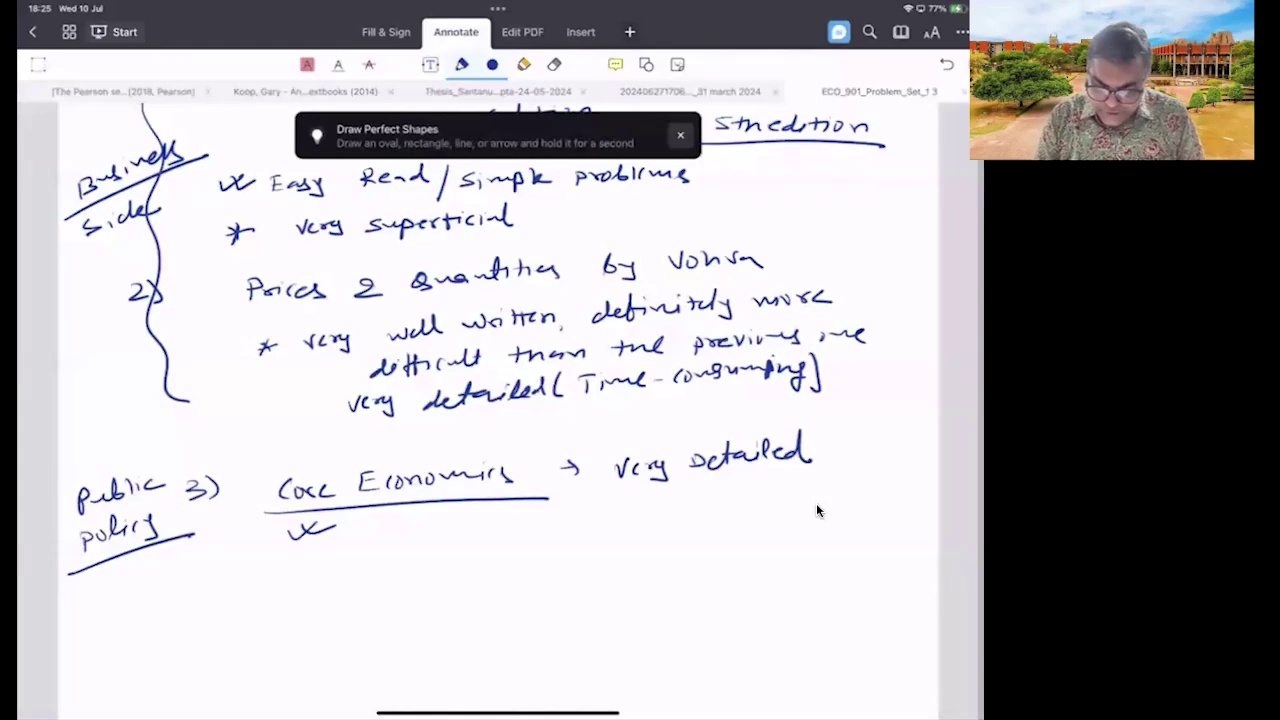 18:25 Wed 10 Jul
77%
Start
Fill & Sign
Annotate
Edit PDF
Insert
[The Pearson se...(2018, Pearson)
Koop, Gary - An...extbooks (2014)
Thesis_Santanu...pta-24-05-2024
202406271706..._31 march 2024
ECO_901_Problem_Set_1 3
Draw Perfect Shapes
Draw an oval, rectangle, line, or arrow and hold it for a second
5th edition
Business
Side
* Easy Read / simple problems
* very superficial
2) Prices & Quantities by Vohra
* very well written, definitely more
difficult than the previous one
very detailed (Time-consuming)
public policy
3) Core Economics → very Detailed